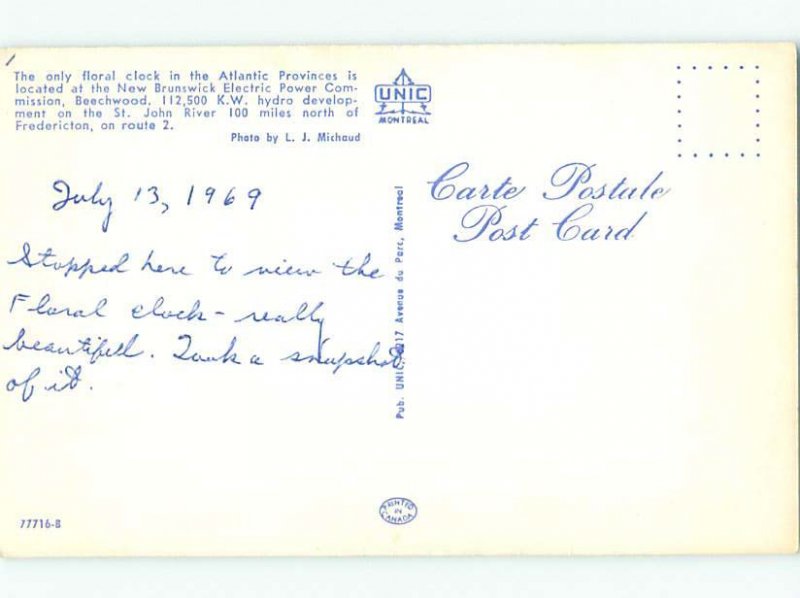 The only floral clock in the Atlantic Provinces is
located at the New Brunswick Electric Power Com-
mission, Beechwood. 112,500 K.W. hydro develop-
ment on the St. John River 100 miles north of
Fredericton, on route 2.
Photo by L. J. Michaud
UNIC
MONTREAL
July 13, 1969
Stopped here to view the
Floral clock - really
beautifull. Took a snapshot
of it.
Pub. UNIC, Avenue du Parc, Montreal
Carte Postale
Post Card
77716-B
PRINTED
IN
CANADA